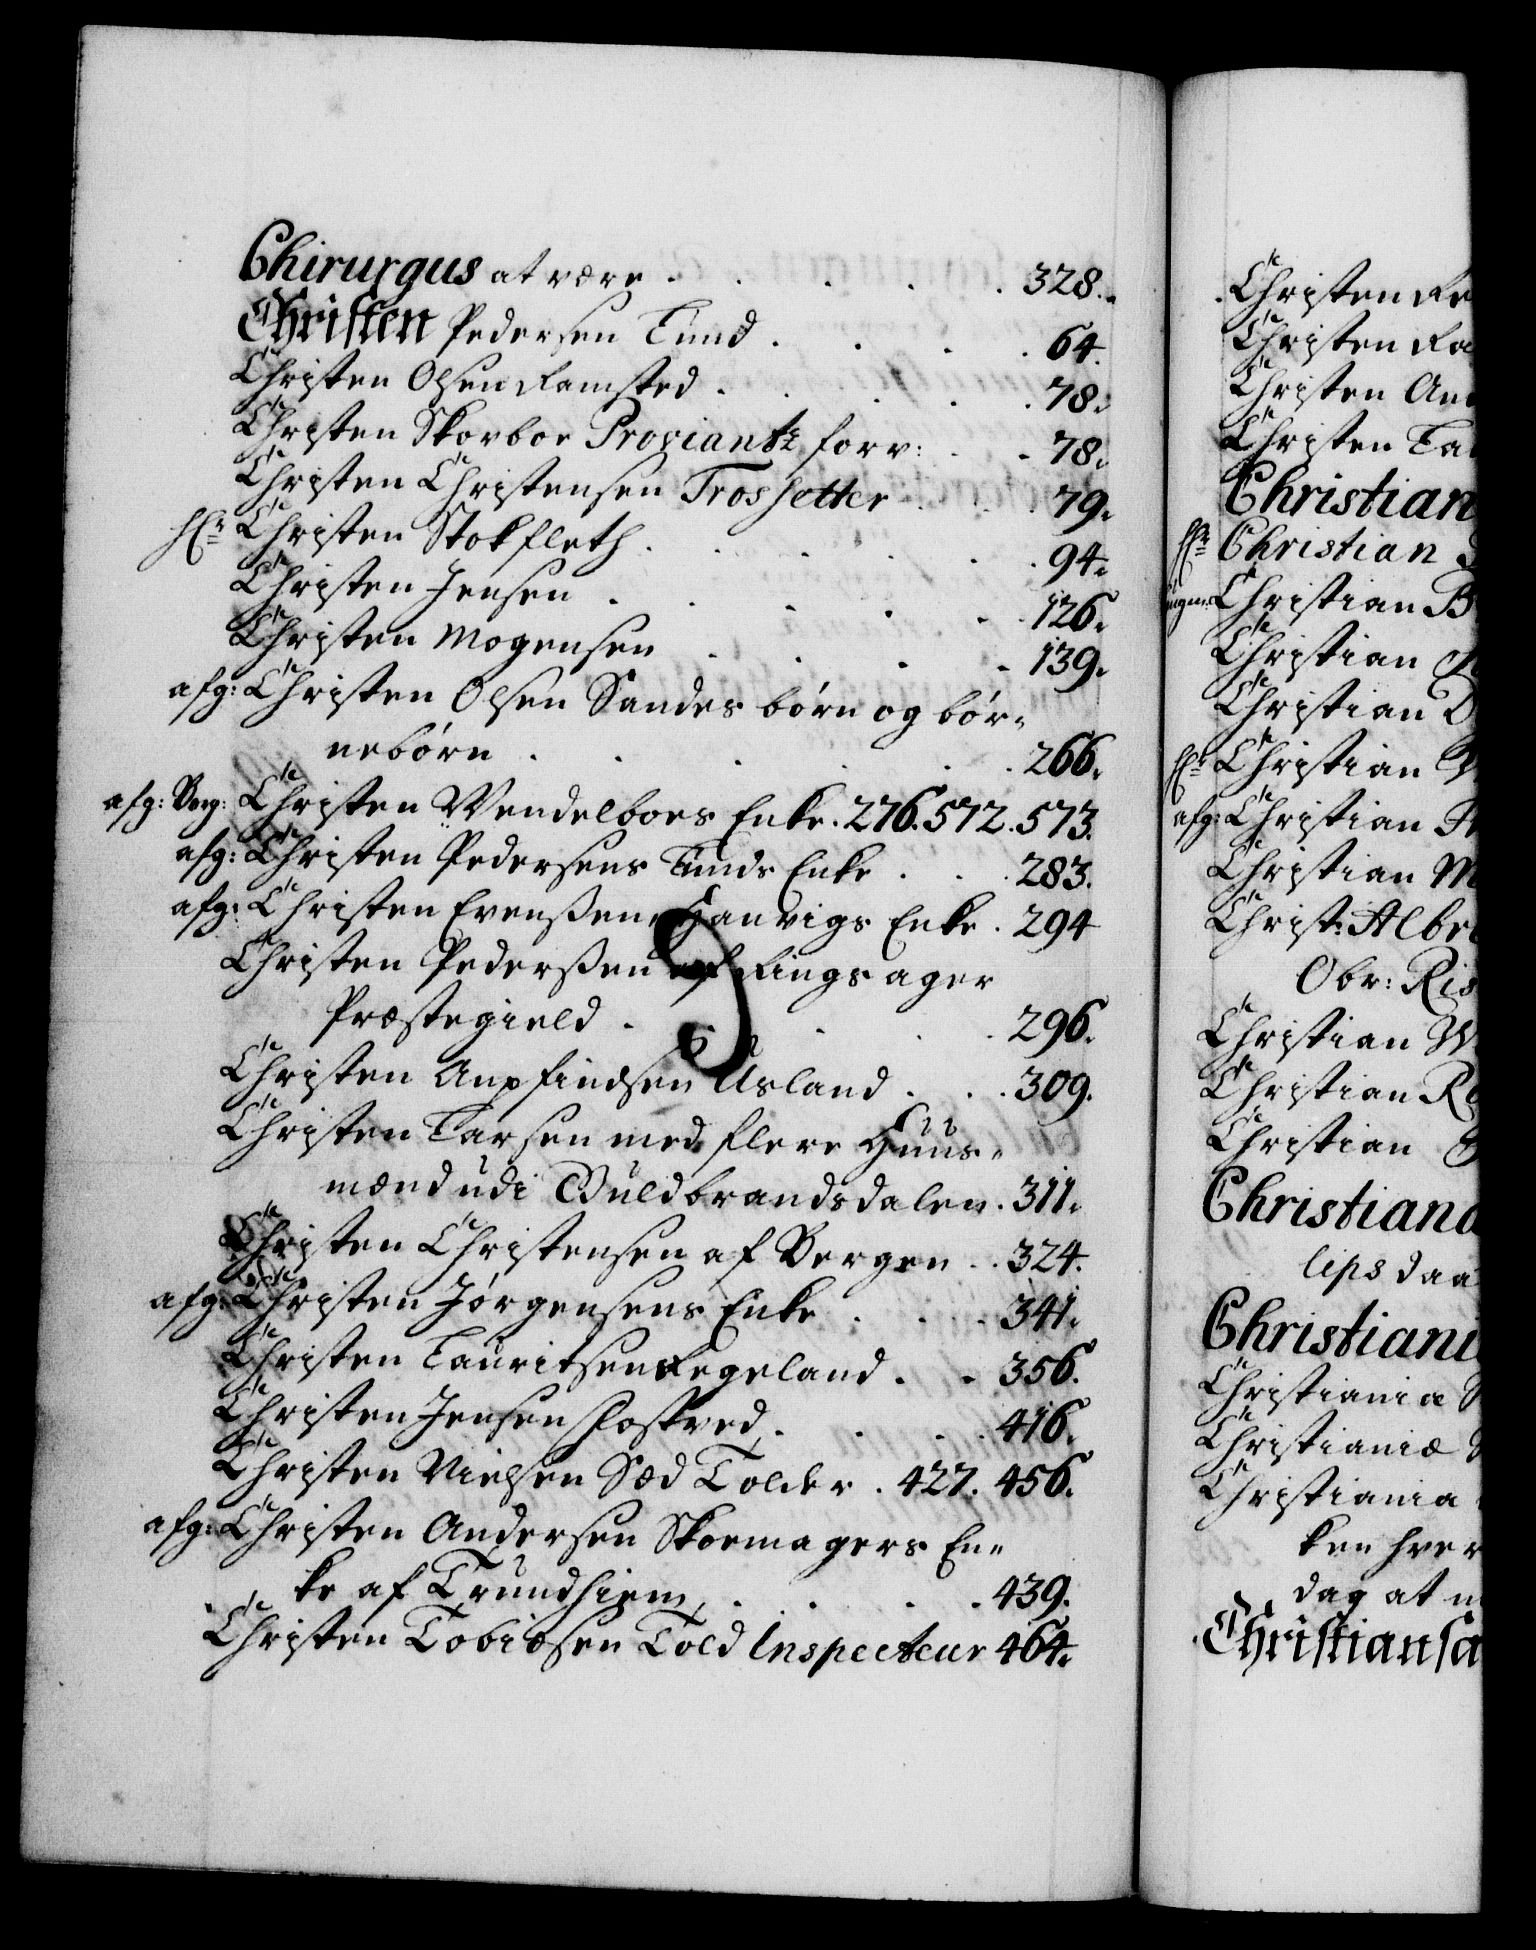 Chirurgus at være . . . . . 328.
Christen Pedersen Lund . . . . 64.
Christen Olsen Ramsted . . . . 78.
Christen Skovboe Proviantz forv: . . 78.
Christen Christensen Trossetter . . . 79.
Hr: Christen Stokfleth . . . . . 94.
Christen Jensen . . . . . 126.
Christen Mogensen . . . . 139.
afg: Christen Olsen Sandes børn og bør-
nebørn . . . . . . 266.
afg: Borg: Christen Wendelboes Enke. 276. 572. 573.
afg: Christen Pedersens Lunds Enke . . . 283.
afg: Christen Evenssen Hanvigs Enke . 294
Christen Pederssen af Ringsager
Præstegield . . . . . 296.
Christen Usland . . . 309.
Christen Larsen med flere Huus-
mænd udi Guldbrandsdalen . 311.
Christen Christensen af Bergen . . 324.
afg: Christen Jørgensens Enke . . . 341.
Christen Lauritsen Regeland . . 356.
Christen Jensen . . . 416.
Christen Nielsen Sæd Tolder . 427. 456.
afg: Christen Andersen Skoemagers En-
ke af Trundhiem . . . . 439.
Christen Tobiæsen Told Inspecteur 464.
Christen Re
Christen Ra
Christen An
Christen La
Christian
Hr: Christian
Christian B
Christian
Christian D
Hr: Christian
afg: Christian
Christian M
Christ: Albre
Obr: Ris
Christian W
Christian Re
Christian
Christiana
lips daa
Christiani
Christiania
Christianiæ
Christiania
ken hver
dag at
Christiansa